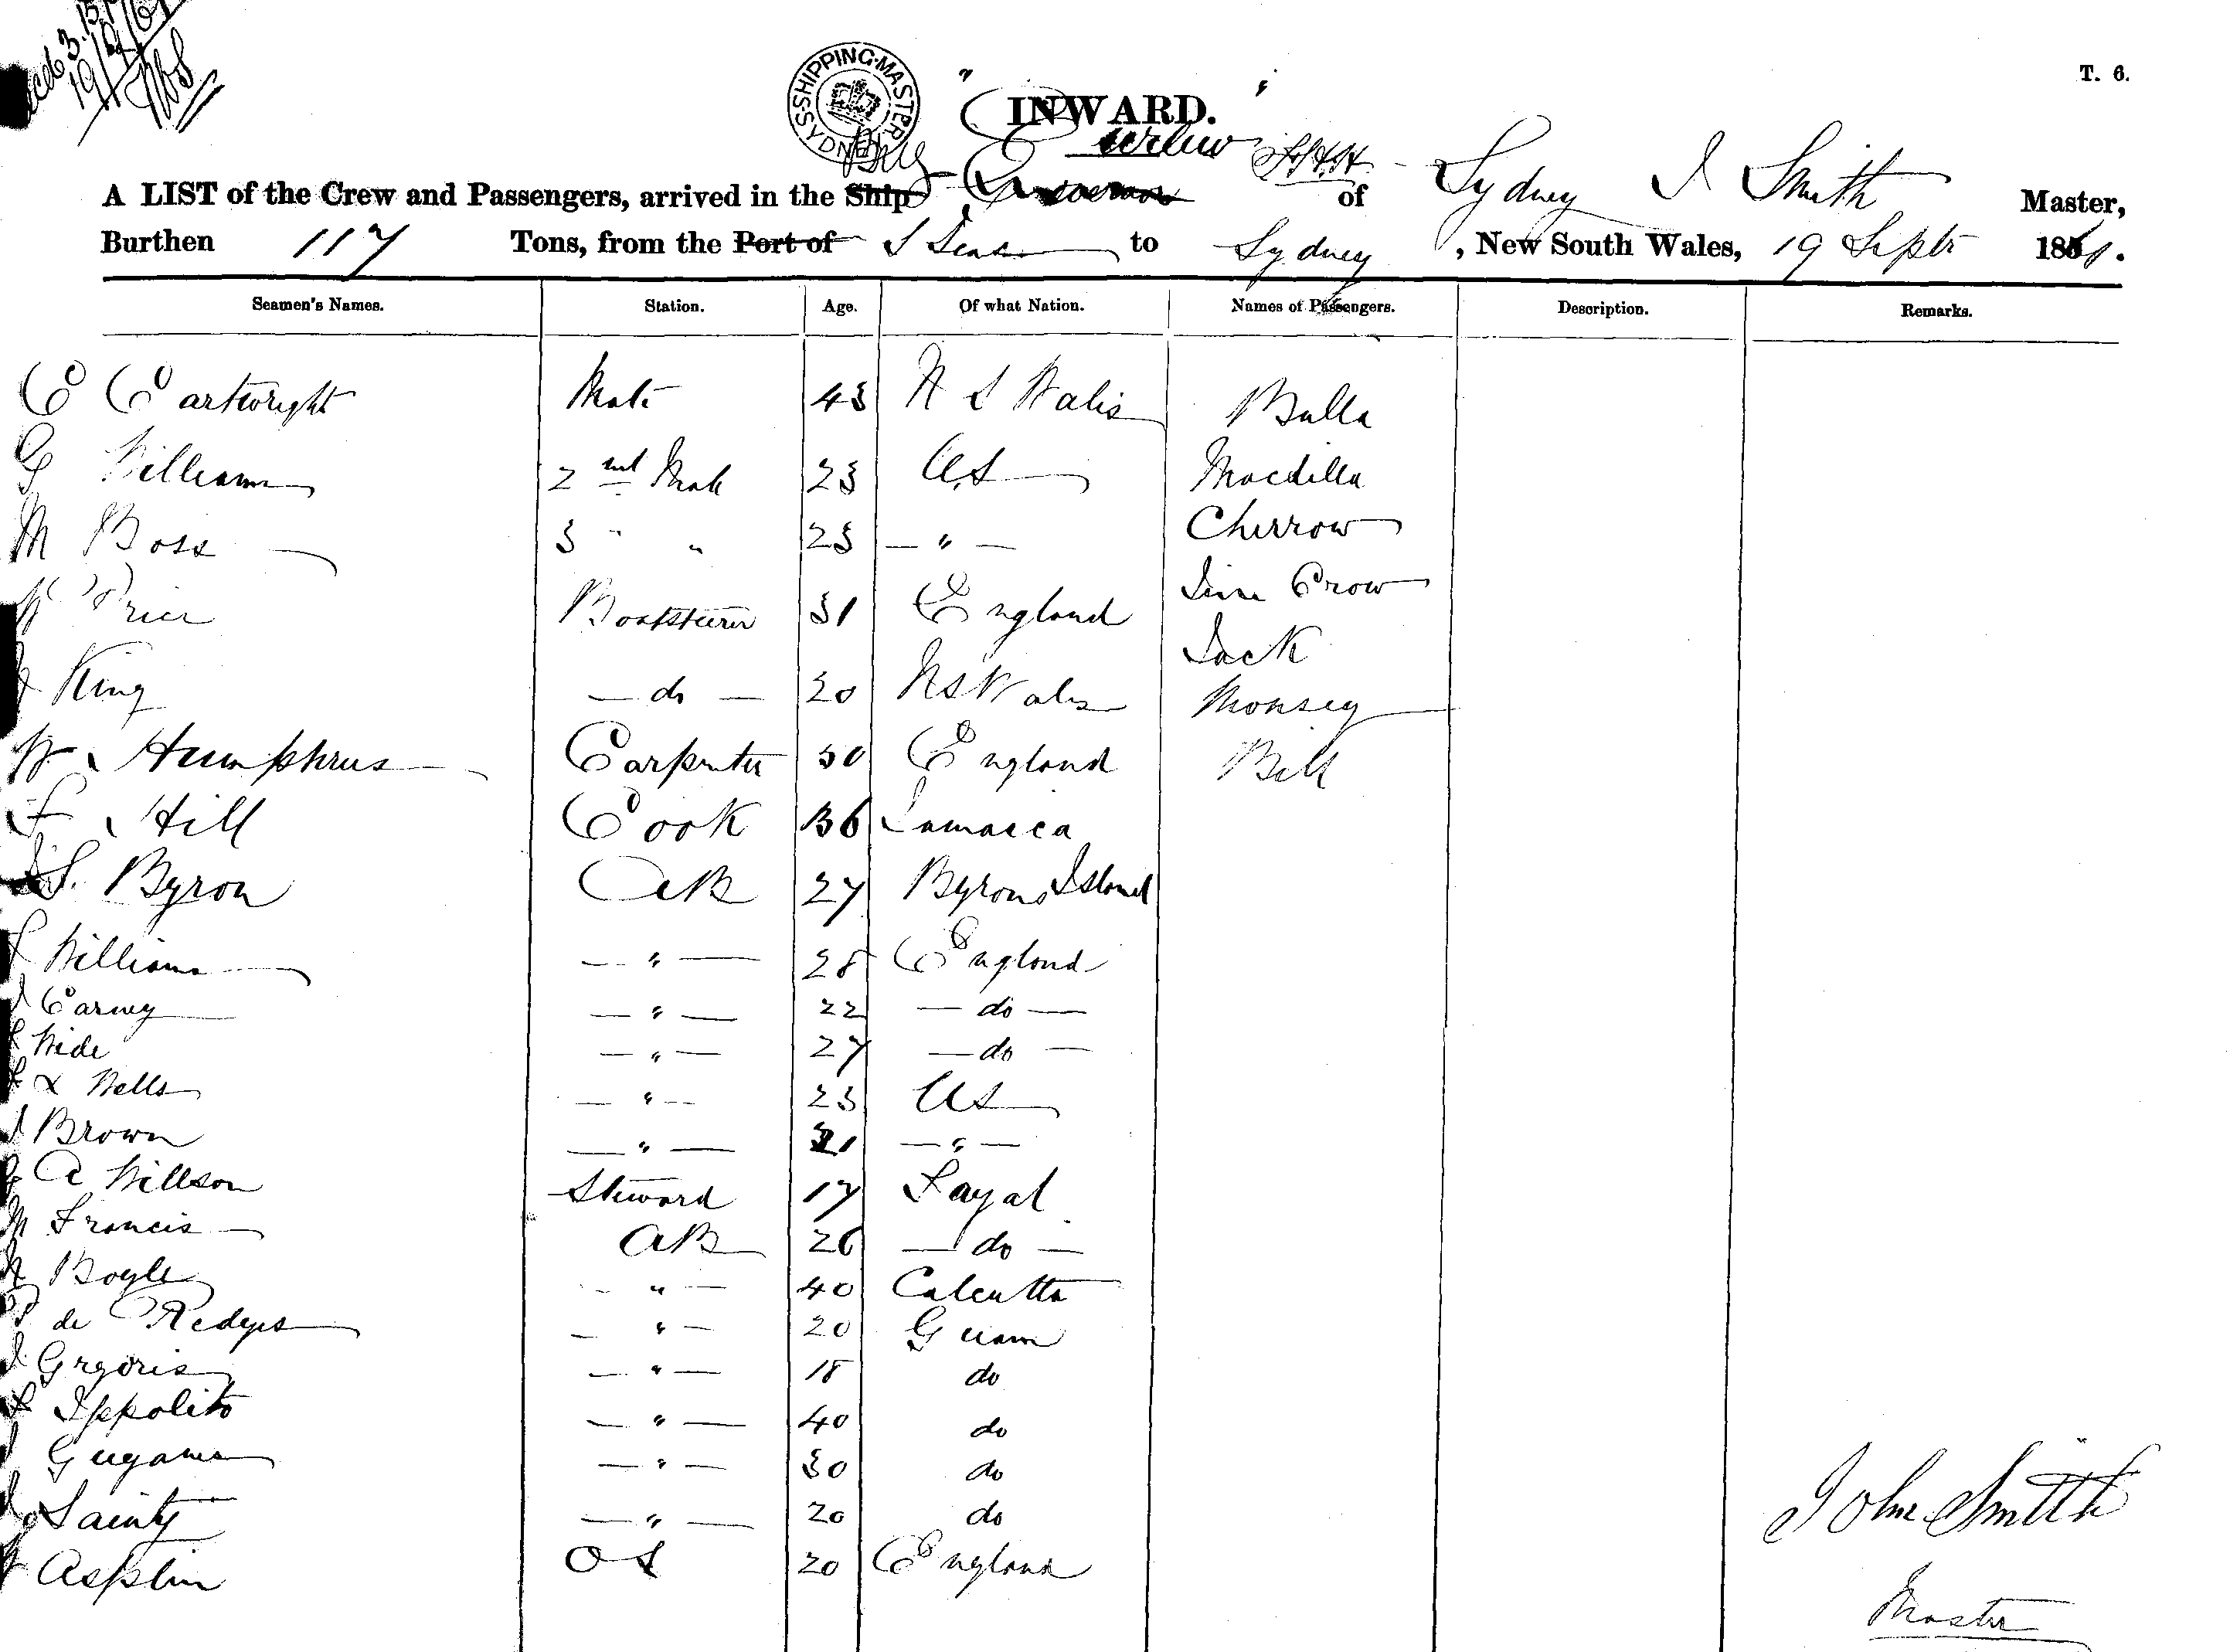 T. 6.
SHIPPING-MASTER SYDNEY
INWARD.
Brig Curlew
A LIST of the Crew and Passengers, arrived in the Ship of Sydney J Smith Master,
Burthen 117 Tons, from the Port of S Seas to Sydney, New South Wales, 19 Septr 1861.
Seamen's Names. Station. Age. Of what Nation. Names of Passengers. Description. Remarks.
C Cartwright Mate 43 N S Wales Bulla
G Williams 2nd Mate 23 US Macdilla
M Boss 3 " " 23 — " — Cherrow
W Price Boatsteerer 31 England Jim Crow
King — do — 20 N S Wales Jack
Monsey
W Humphrus Carpenter 50 England Bill
F Hill Cook 36 Jamaica
S. Byron AB 27 Byrons Island
Williams — " — 28 England
J Carney — " — 22 — do —
Wide — " — 27 — do —
Wells — " — 23 US
J Brown — " — 21 — " —
A Willson Steward 17 Fayal
M Francis AB 26 — do —
Boyle " — 40 Calcutta
de Redyes — " — 20 Guam
J Grgoris — " — 18 do
Ippolito — " — 40 do
Gugana — " — 30 do
Sainty — " — 20 do
Asplin OS 20 England
John Smith
Master